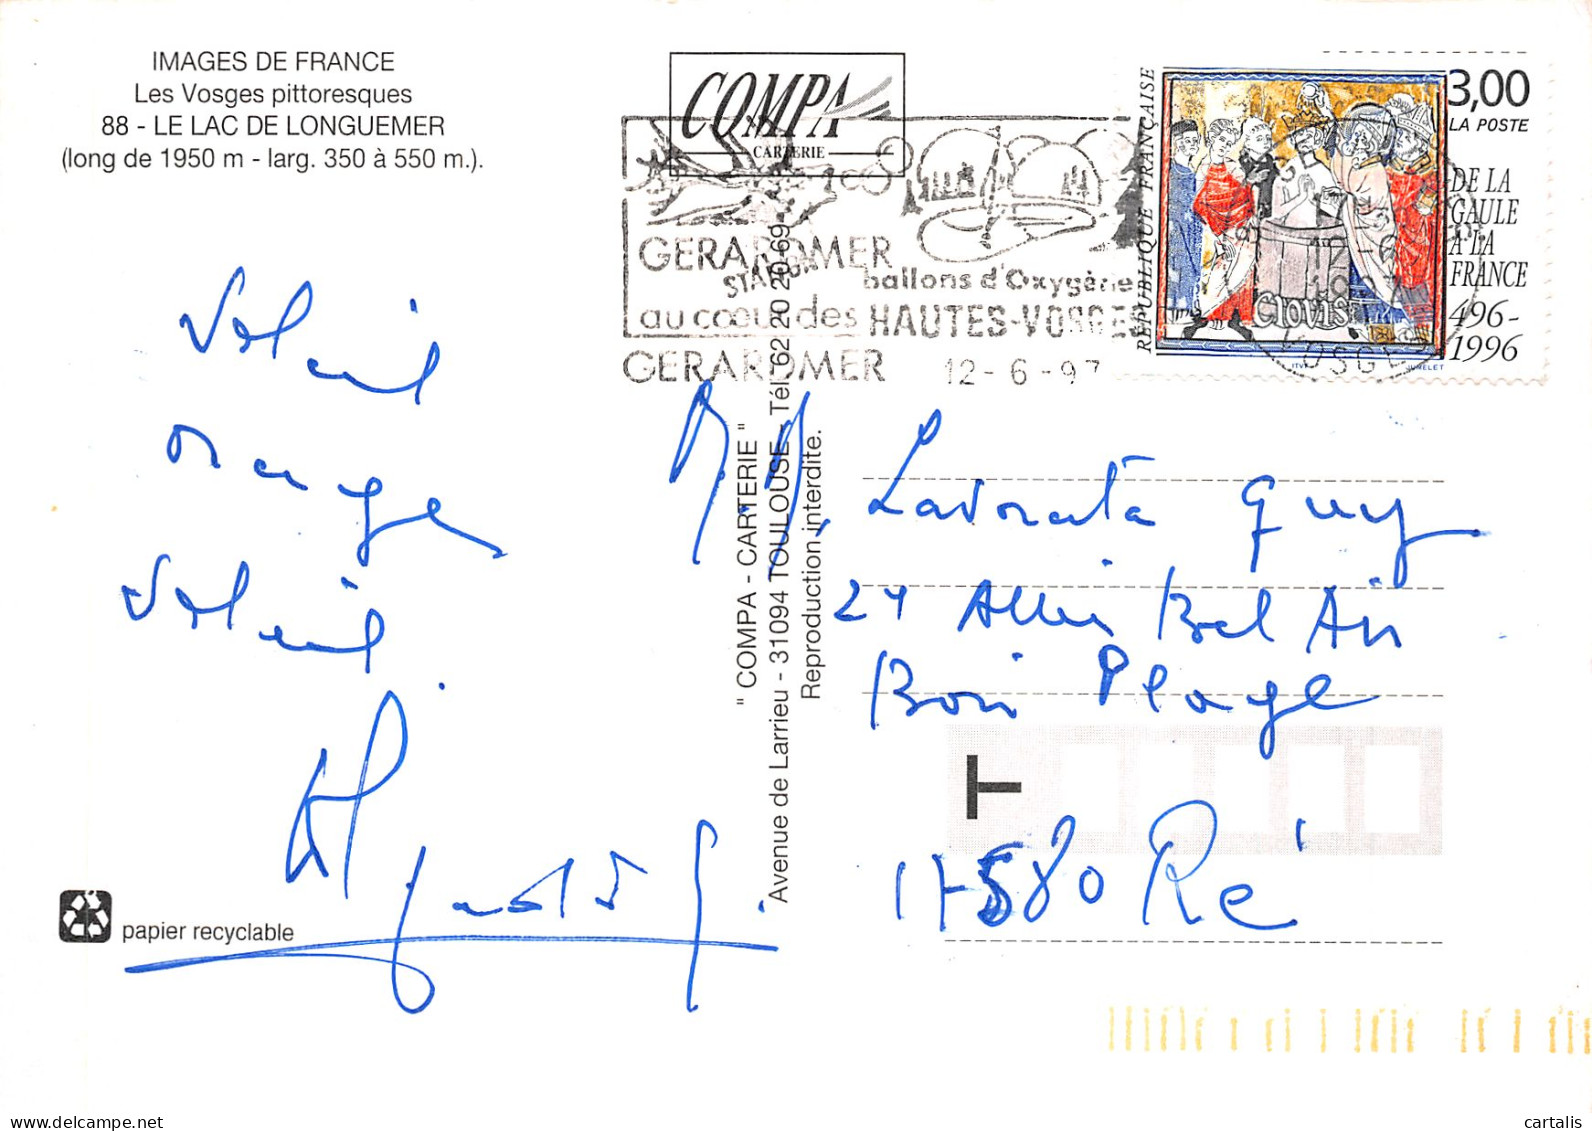 IMAGES DE FRANCE
Les Vosges pittoresques
88 - LE LAC DE LONGUEMER
(long de 1950 m - larg. 350 à 550 m.).
COMPA
CARTERIE
GERARDMER
STATION
ballons d'Oxygène
au cœur des HAUTES-VOSGES
GERARDMER 12-6-97
REPUBLIQUE FRANÇAISE
3,00
LA POSTE
DE LA
GAULE
A LA
FRANCE
496-
1996
Clovis
ITVF
JUMELET
VOSGES
Soleil
orages
Soleil
" COMPA - CARTERIE "
Avenue de Larrieu - 31094 TOULOUSE - Tél. 62 20 20 69
Reproduction interdite.
M. M. Lavorata Guy
24 Allée Bel Air
Bois Plage
T
17580 Ré
papier recyclable
cartalis
delcampe.net